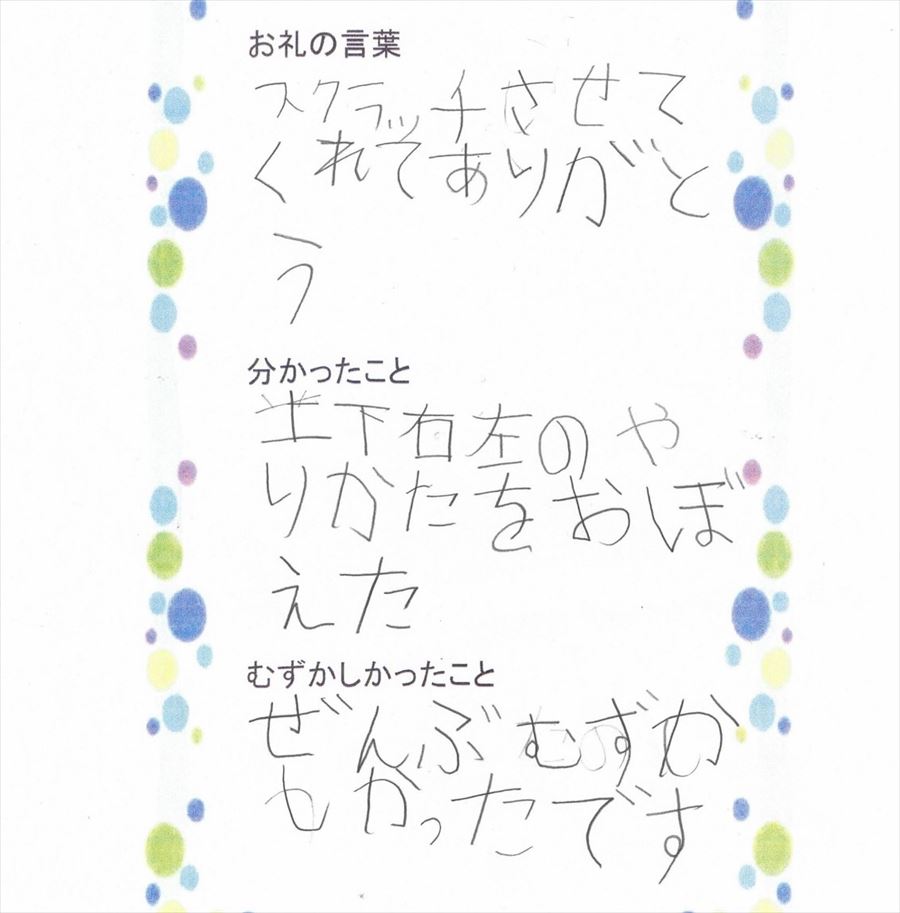 お礼の言葉
スクラッチさせて
くれてありがと
う
分かったこと
上下右左のや
りかたをおぼ
えた
むずかしかったこと
ぜんぶむずか
しかったです